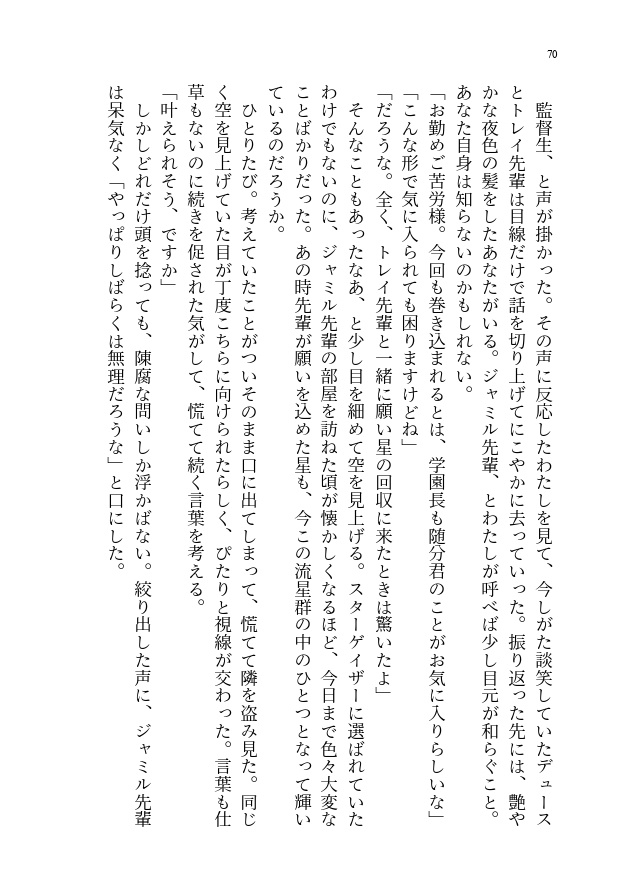 70
　監督生、と声が掛かった。その声に反応したわたしを見て、今しがた談笑していたデュース
とトレイ先輩は目線だけで話を切り上げてにこやかに去っていった。振り返った先には、艶や
かな夜色の髪をしたあなたがいる。ジャミル先輩、とわたしが呼べば少し目元が和らぐこと。
あなた自身は知らないのかもしれない。
「お勤めご苦労様。今回も巻き込まれるとは、学園長も随分君のことがお気に入りらしいな」
「こんな形で気に入られても困りますけどね」
「だろうな。全く、トレイ先輩と一緒に願い星の回収に来たときは驚いたよ」
　そんなこともあったなあ、と少し目を細めて空を見上げる。スターゲイザーに選ばれていた
わけでもないのに、ジャミル先輩の部屋を訪ねた頃が懐かしくなるほど、今日まで色々大変な
ことばかりだった。あの時先輩が願いを込めた星も、今この流星群の中のひとつとなって輝い
ているのだろうか。
　ひとりたび。考えていたことがついそのまま口に出てしまって、慌てて隣を盗み見た。同じ
く空を見上げていた目が丁度こちらに向けられたらしく、ぴたりと視線が交わった。言葉も仕
草もないのに続きを促された気がして、慌てて続く言葉を考える。
「叶えられそう、ですか」
　しかしどれだけ頭を捻っても、陳腐な問いしか浮かばない。絞り出した声に、ジャミル先輩
は呆気なく「やっぱりしばらくは無理だろうな」と口にした。